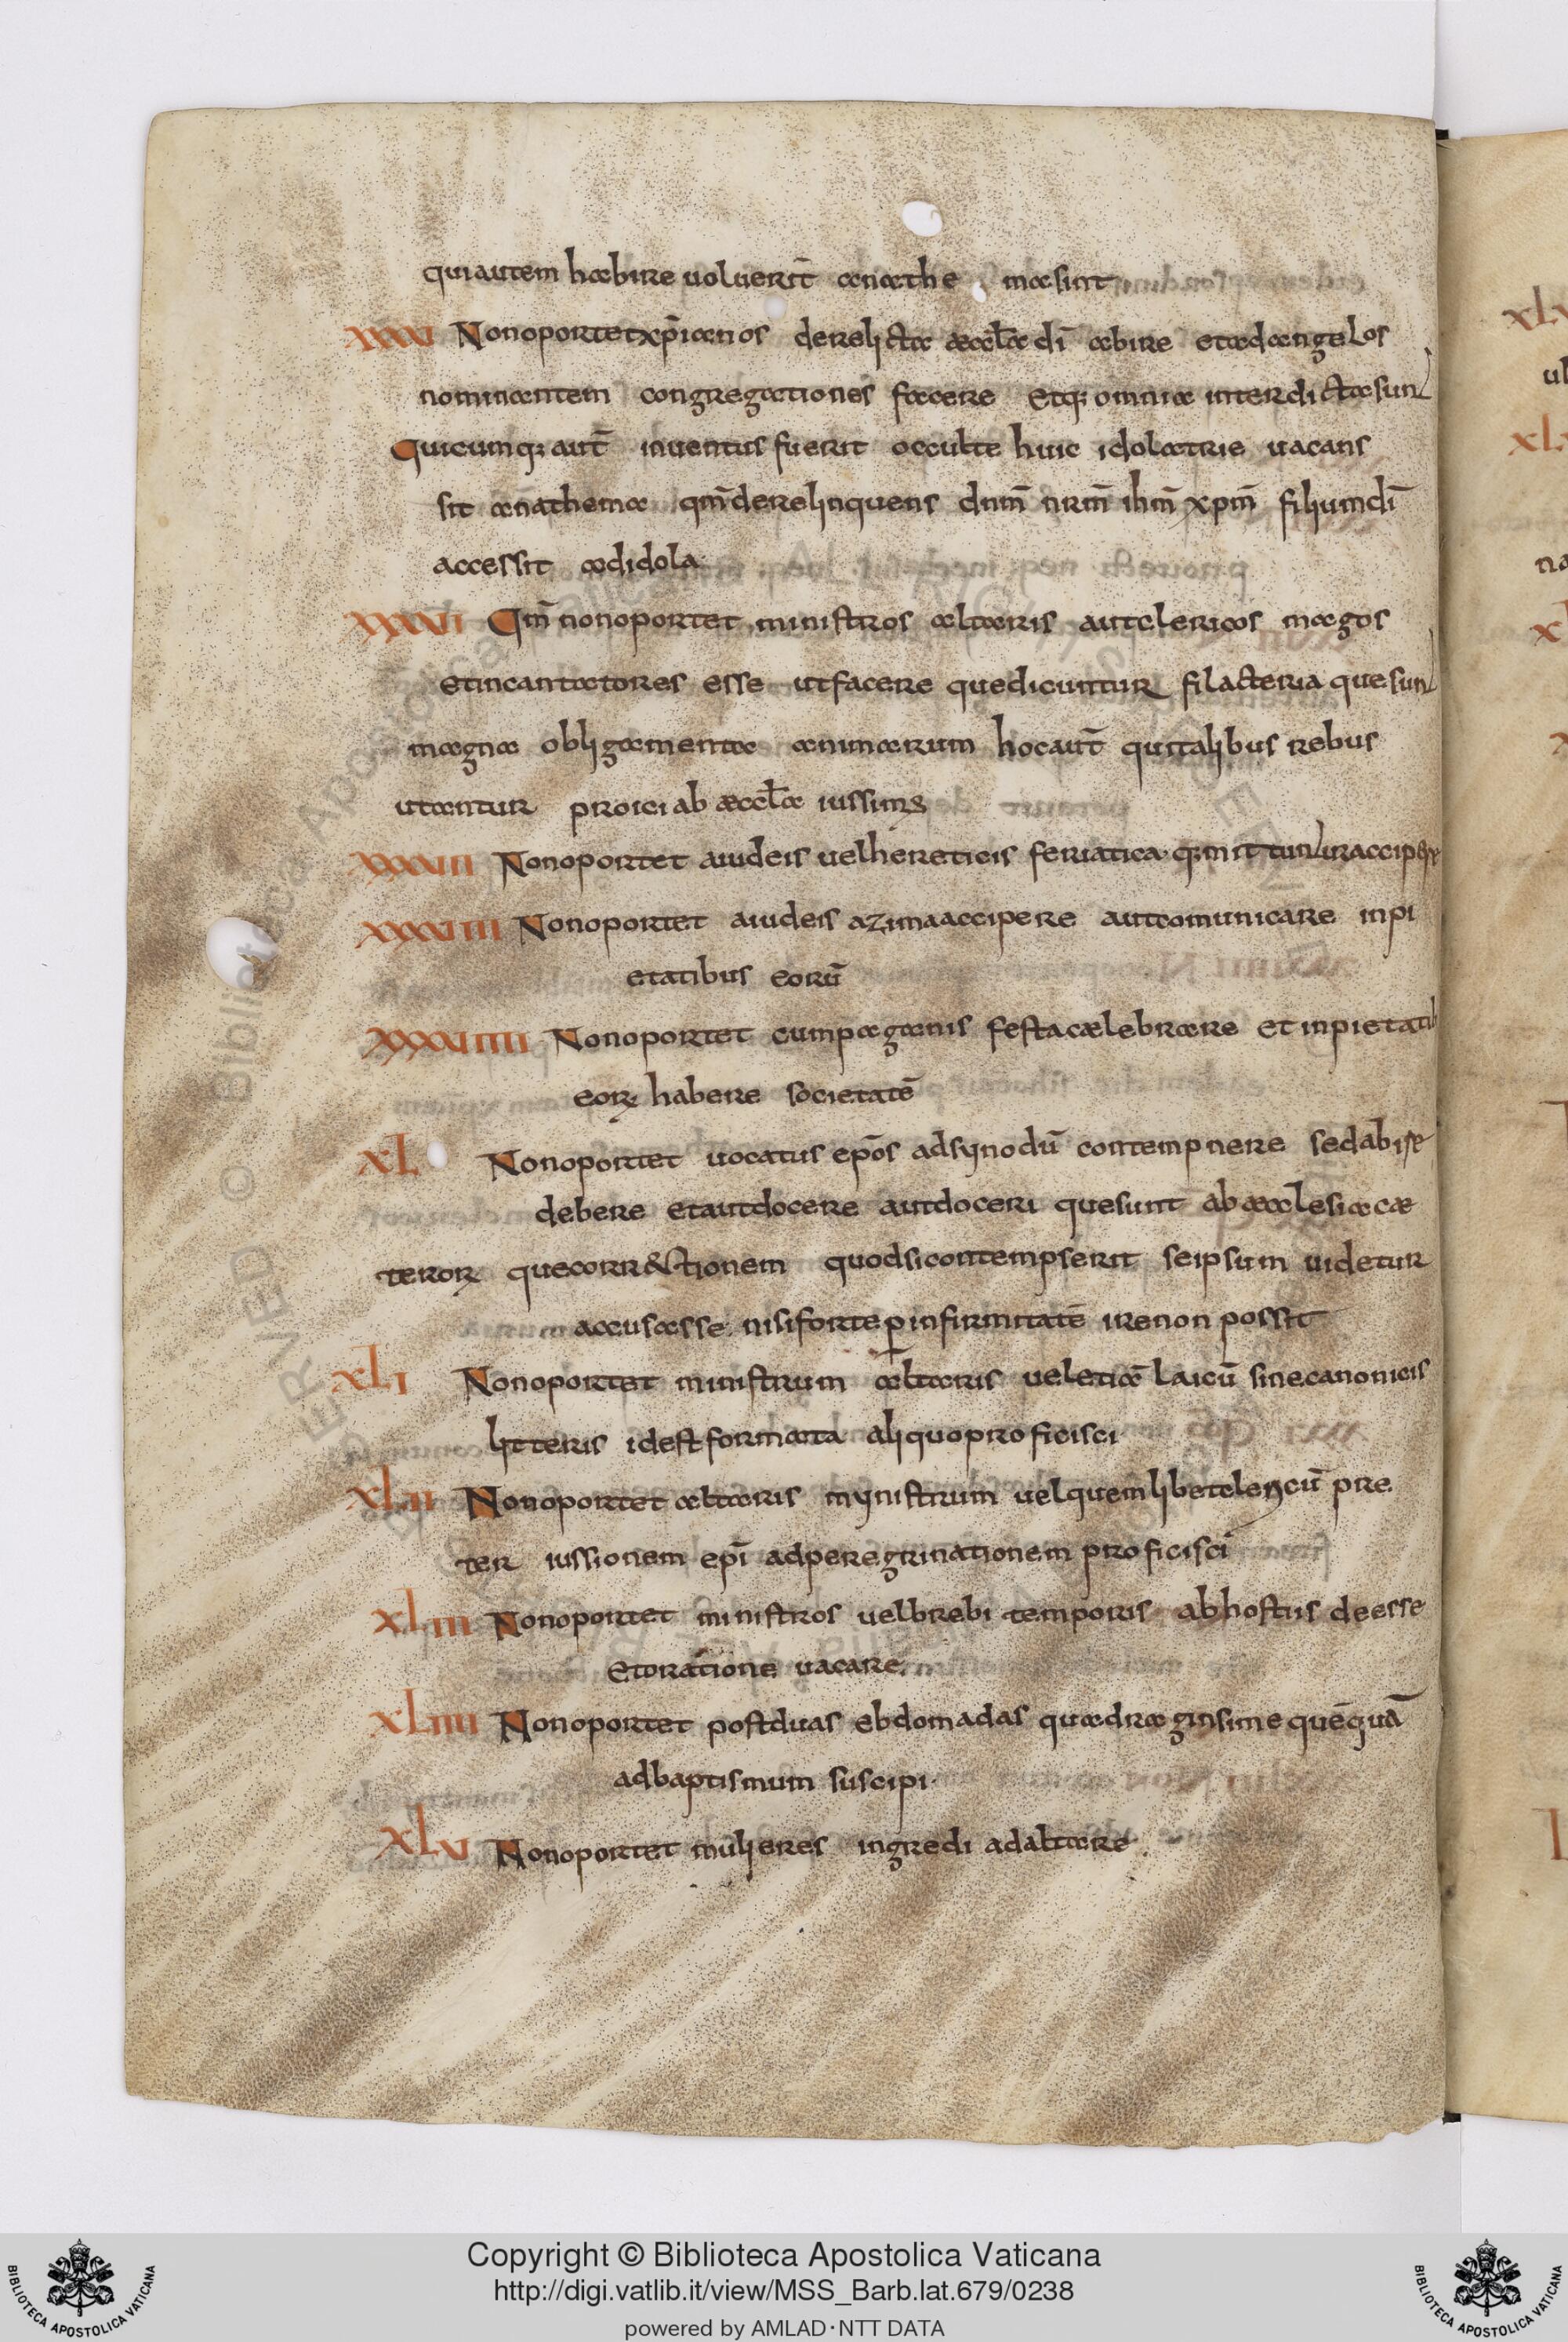 qui autem habire voluerit̄ anathe ma sint
xxxv Non oportet xp̄ianos derelicta æccl̄a dī abire et ad angelos
nominantem congregationes facere Etq; omnia interdicta sunt
Quicumq; aut̄ inventus fuerit occulte huic idolatrie vacans
sit anathema qm̄ derelinquens dnm̄ nrm̄ ihm̄ xpm̄ filium dī
accessit ad idola
xxxvi Qm̄ non oportet ministros altaris aut clericos magos
et incantatores esse ut facere que dicuntur filacteria que sunt
magna obligamenta animarum hoc aut̄ qui talibus rebus
utantur proici ab æccl̄a iussims
xxxvii Non oportet a iudeis vel hereticis feriatica q; mittuntur accipere
xxxviii Non oportet a iudeis azima accipere aut comunicare inpi
etatibus eorū
xxxviiii Non oportet cum paganis festa cælebrare et inpietatib
eorꝝ habere societatē
xl Non oportet vocatus epōs ad synodū contempnere sed abire
debere et aut docere aut doceri que sunt ab æcclesia cæ
terorꝝ que corr&ctionem quod si contempserit se ipsum videtur
accusasse nisi forte ꝑ infirmitatē ire non possit
xli Non oportet ministrum altaris vel etiā laicū sine canonicis
litteris id est formata aliquo proficisci
xlii Non oportet altaris mynistrum vel quemlibet clericū pre
ter iussionem epī ad peregrinationem proficisci
xliii Non oportet ministros vel brebi temporis ab hostiis deesse
Et oratione vacare
xliiii Non oportet post duas ebdomadas quadraginsime quēquā
ad baptismum suscipi
xlv Non oportet mulieres ingredi ad altare
Copyright © Biblioteca Apostolica Vaticana
http://digi.vatlib.it/view/MSS_Barb.lat.679/0238
powered by AMLAD·NTT DATA